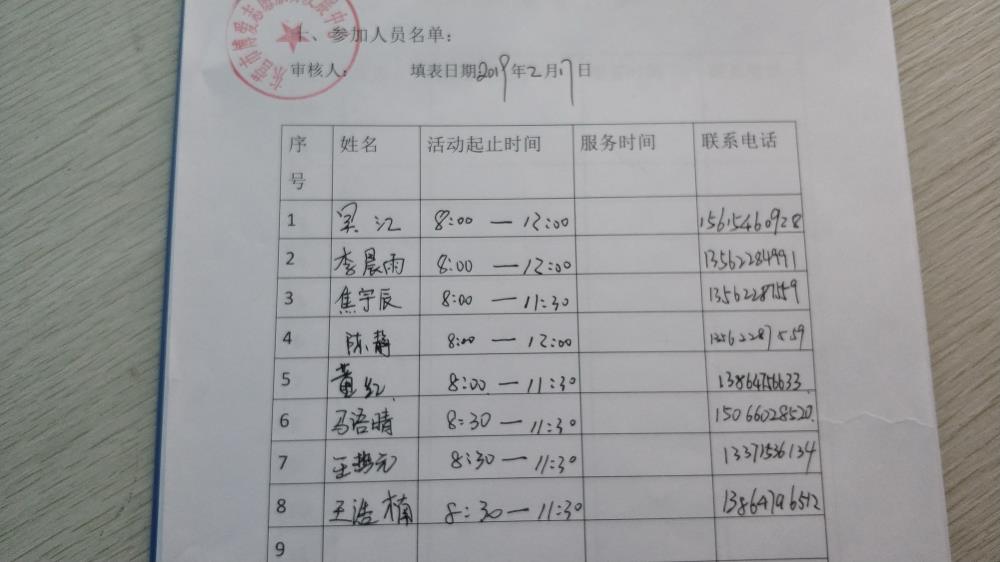 七、参加人员名单：
审核人： 填表日期2019年2月17日
序号 姓名 活动起止时间 服务时间 联系电话
1 吴江 8:00 — 12:00 15615460928
2 李晨雨 8:00 — 12:00 13562284991
3 焦宇辰 8:00 — 11:30 13562287559
4 陈静 8:00 — 12:00 13562287559
5 黄红 8:00 — 11:30 13864756633
6 马语晴 8:30 — 11:30 15066028520
7 8:30 — 11:30 13371536134
8 王浩楠 8:30 — 11:30 13864796512
9